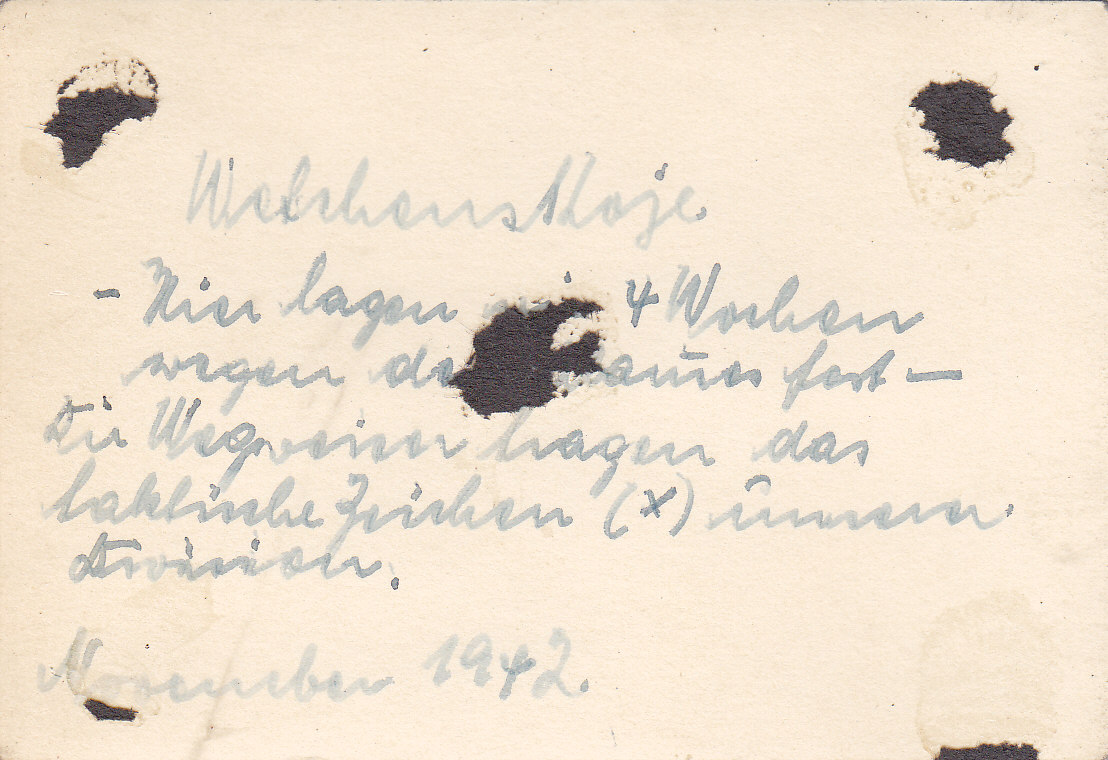 Welchenskoje.
- Hier lagen wir 4 Wochen
wegen fest -
Die Wegweiser tragen das
taktische Zeichen (x) unserer
Division.
November 1942.